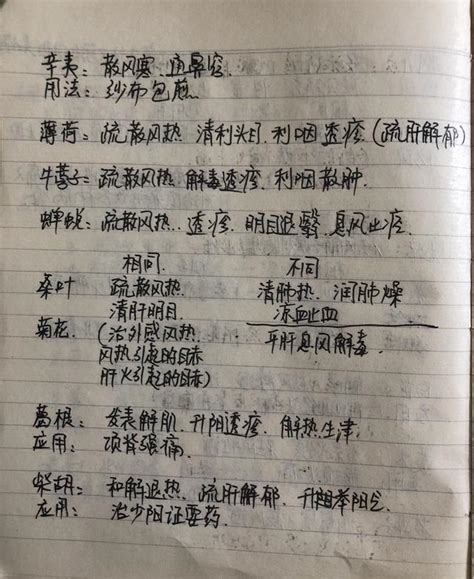 辛夷：散风寒、通鼻窍.
用法：纱布包煎.
薄荷：疏散风热 清利头目、利咽透疹(疏肝解郁)
牛蒡子：疏散风热、解毒透疹、利咽散肿.
蝉蜕：疏散风热、透疹、明目退翳、息风止痉.
相同. 不同
桑叶 疏散风热 清肺热、润肺燥
清肝明目. 凉血止血
菊花. (治外感风热. 平肝息风解毒.
风热引起的目赤
肝火引起的目赤)
葛根：发表解肌、升阳透疹、解热生津.
应用：项背强痛.
柴胡：和解退热、疏肝解郁、升阳举阳气.
应用：治少阳证要药.